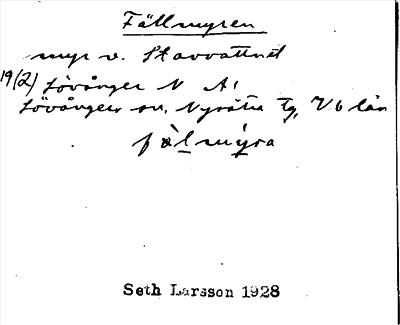 Fällmyren
myr v. Stavvattnet
19(2) Lövånger N A1
Lövångers sn. Nysätra tg, Vb län
fälmýra
Seth Larsson 1928